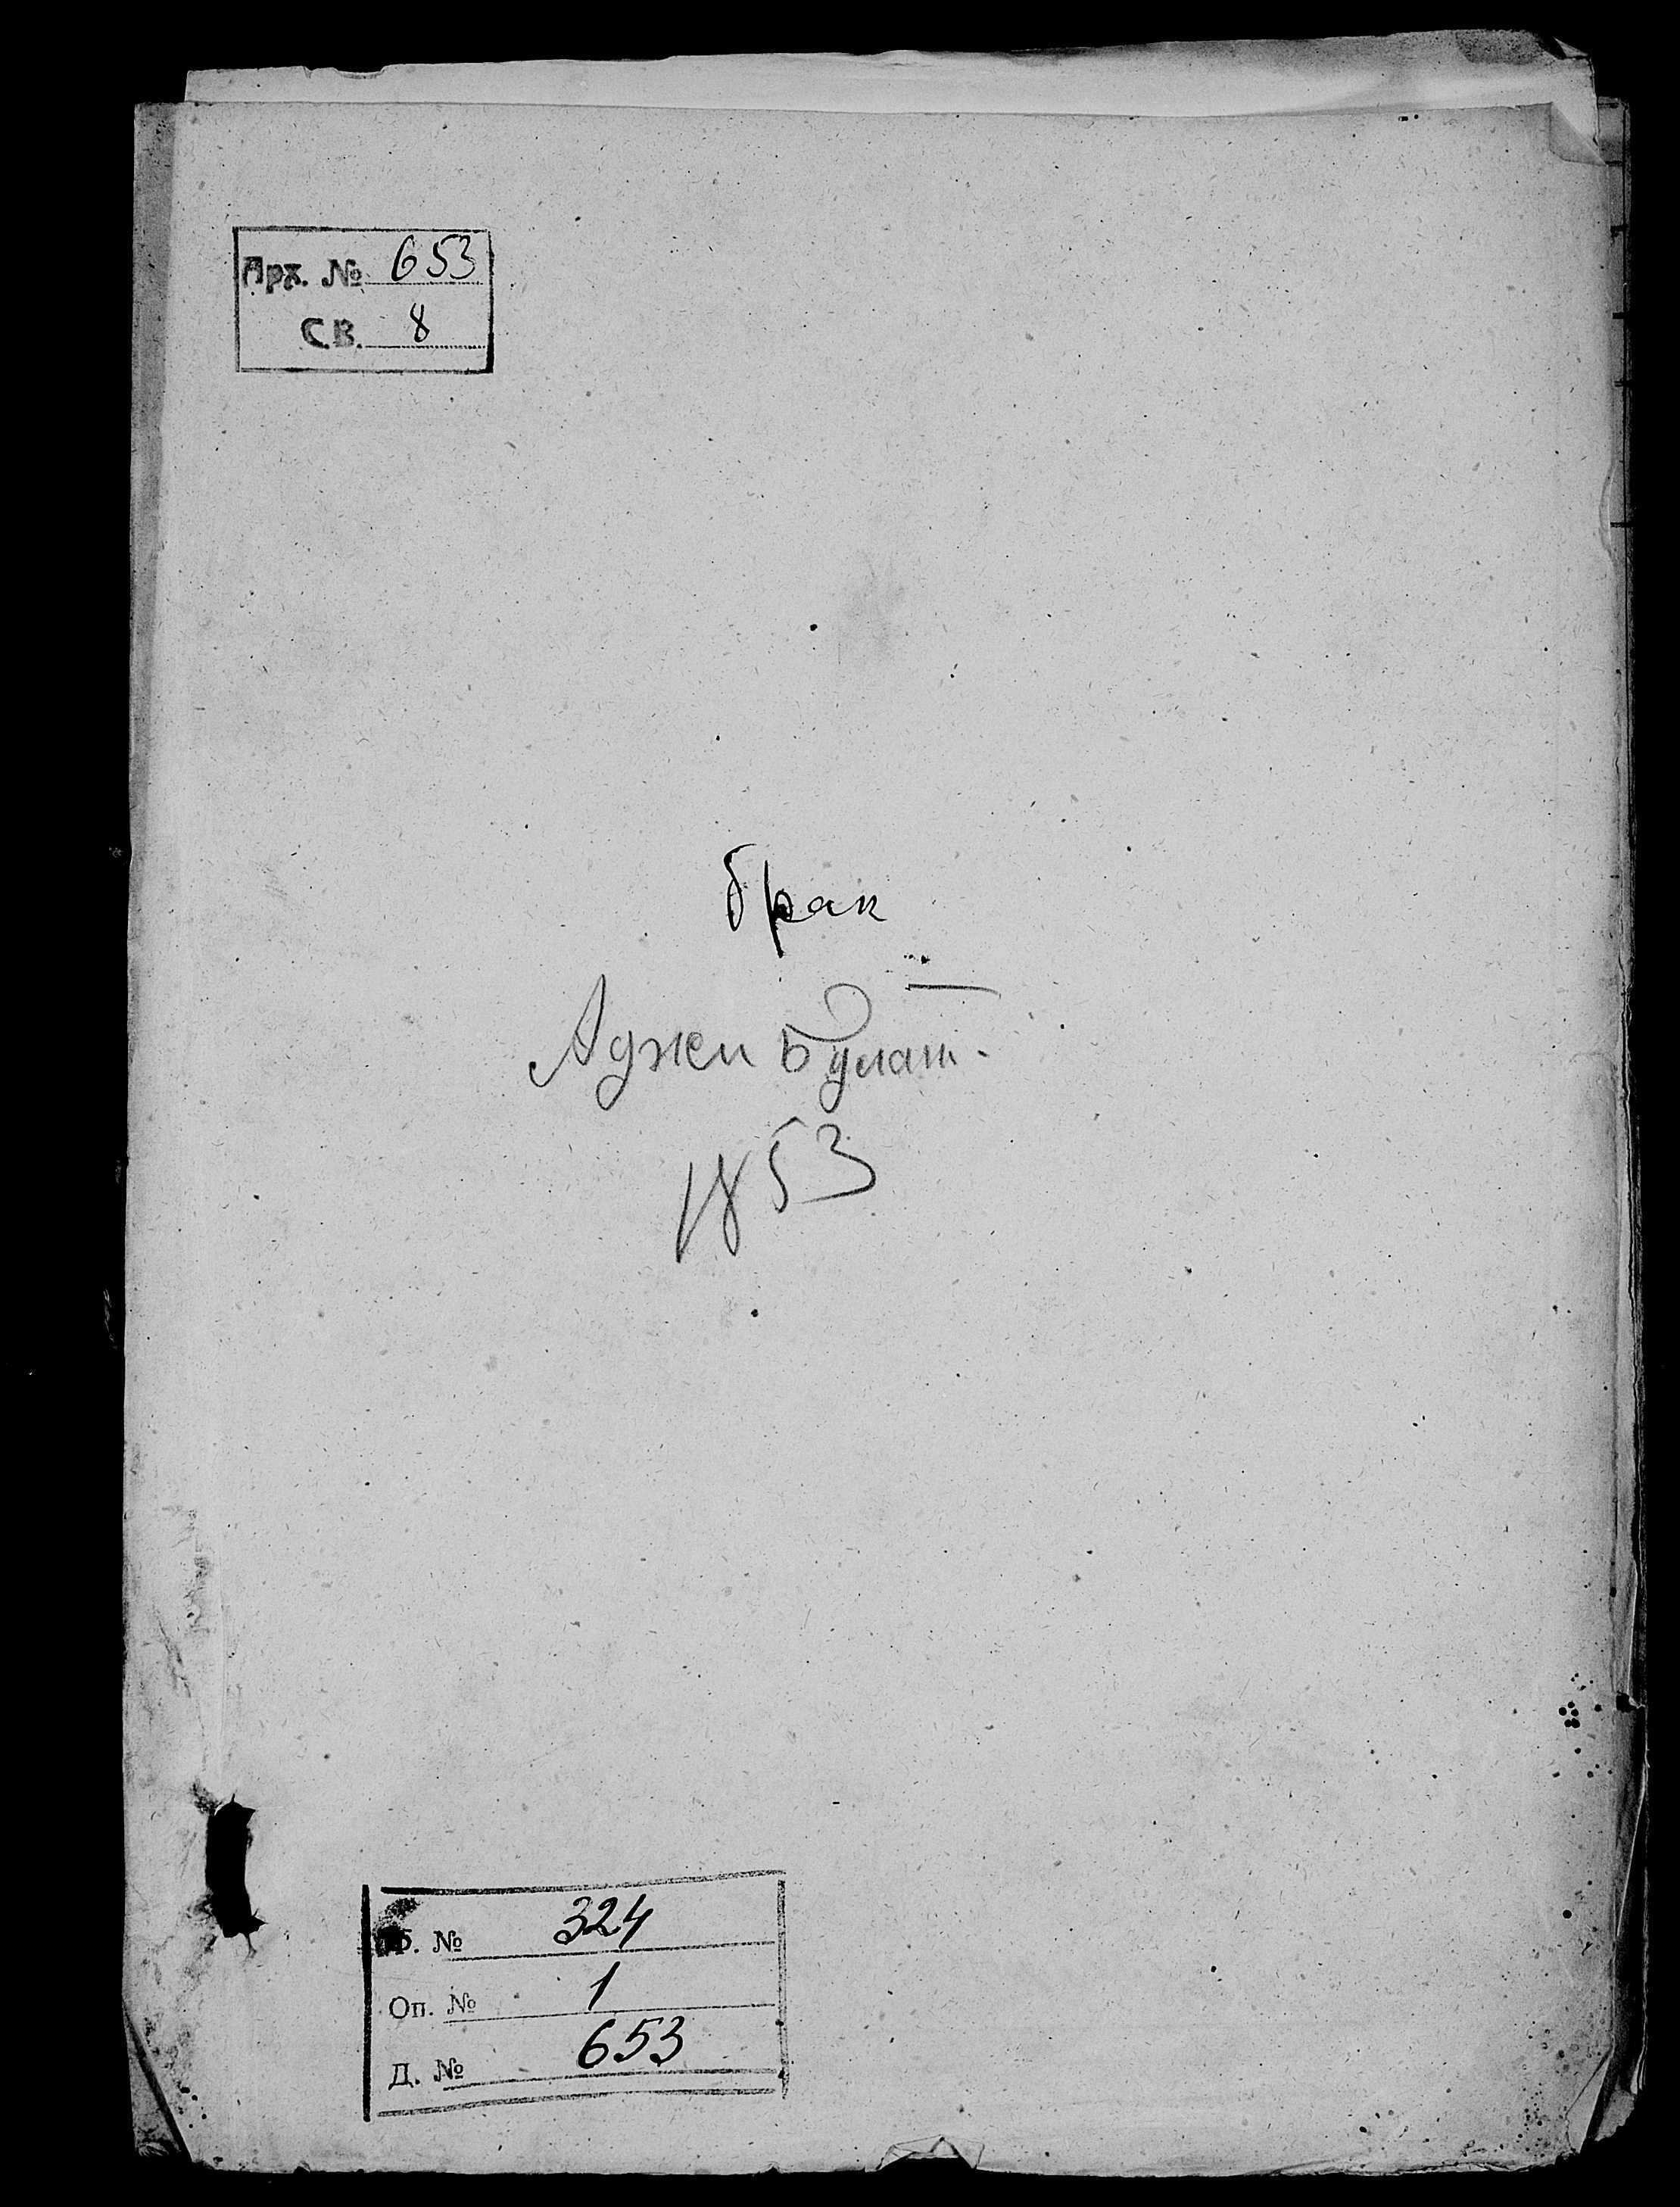 Арх. № 653
С.В. 8
брак
Аджи Булат.
1853
Ф. № 324
Оп. № 1
Д. № 653